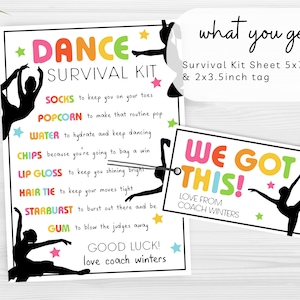 what you ge
Survival Kit Sheet 5x7
& 2x3.5inch tag
DANCE
SURVIVAL KIT
SOCKS to keep you on your toes
POPCORN to make that routine pop
WATER to hydrate and keep dancing
CHIPS because you're going to bag a win
LIP GLOSS to keep you shining bright
HAIR TIE to keep your moves tight
STARBURST to burst out there and be
GUM to blow the judges away
GOOD LUCK!
love coach winters
WE GOT
THIS!
LOVE FROM
COACH WINTERS